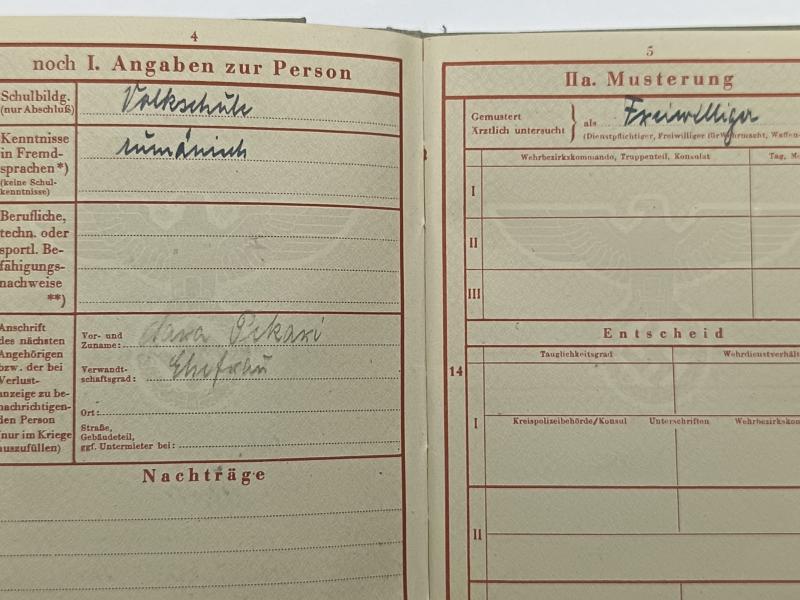 4
noch I. Angaben zur Person
Schulbildg.
(nur Abschluß)
Volkschule
Kenntnisse
in Fremd-
sprachen*)
(keine Schul-
kenntnisse)
rumänisch
Berufliche,
techn. oder
sportl. Be-
fähigungs-
nachweise
**)
Anschrift
des nächsten
Angehörigen
bzw. der bei
Verlust-
anzeige zu be-
nachrichtigen-
den Person
(nur im Kriege
auszufüllen)
Vor- und
Zuname:
Verwandt-
schaftsgrad: Ehefrau
Ort:
Straße,
Gebäudeteil,
ggf. Untermieter bei:
Nachträge
5
IIa. Musterung
Gemustert
Ärztlich untersucht } als Freiwilliger
(Dienstpflichtiger, Freiwilliger für Wehrmacht, Waffen-
Wehrbezirkskommando, Truppenteil, Konsulat
Tag, Mo
I
II
III
Entscheid
14
Tauglichkeitsgrad
Wehrdienstverhält
I
Kreispolizeibehörde/Konsul
Unterschriften
Wehrbezirkskom
II